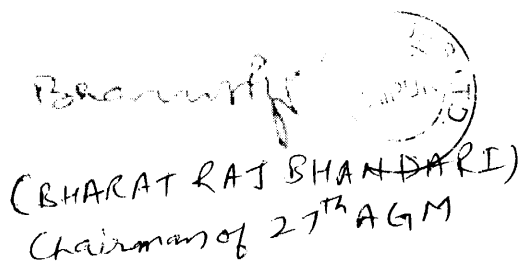 (BHARAT RAJ BHANDARI)
Chairman of 27th AGM